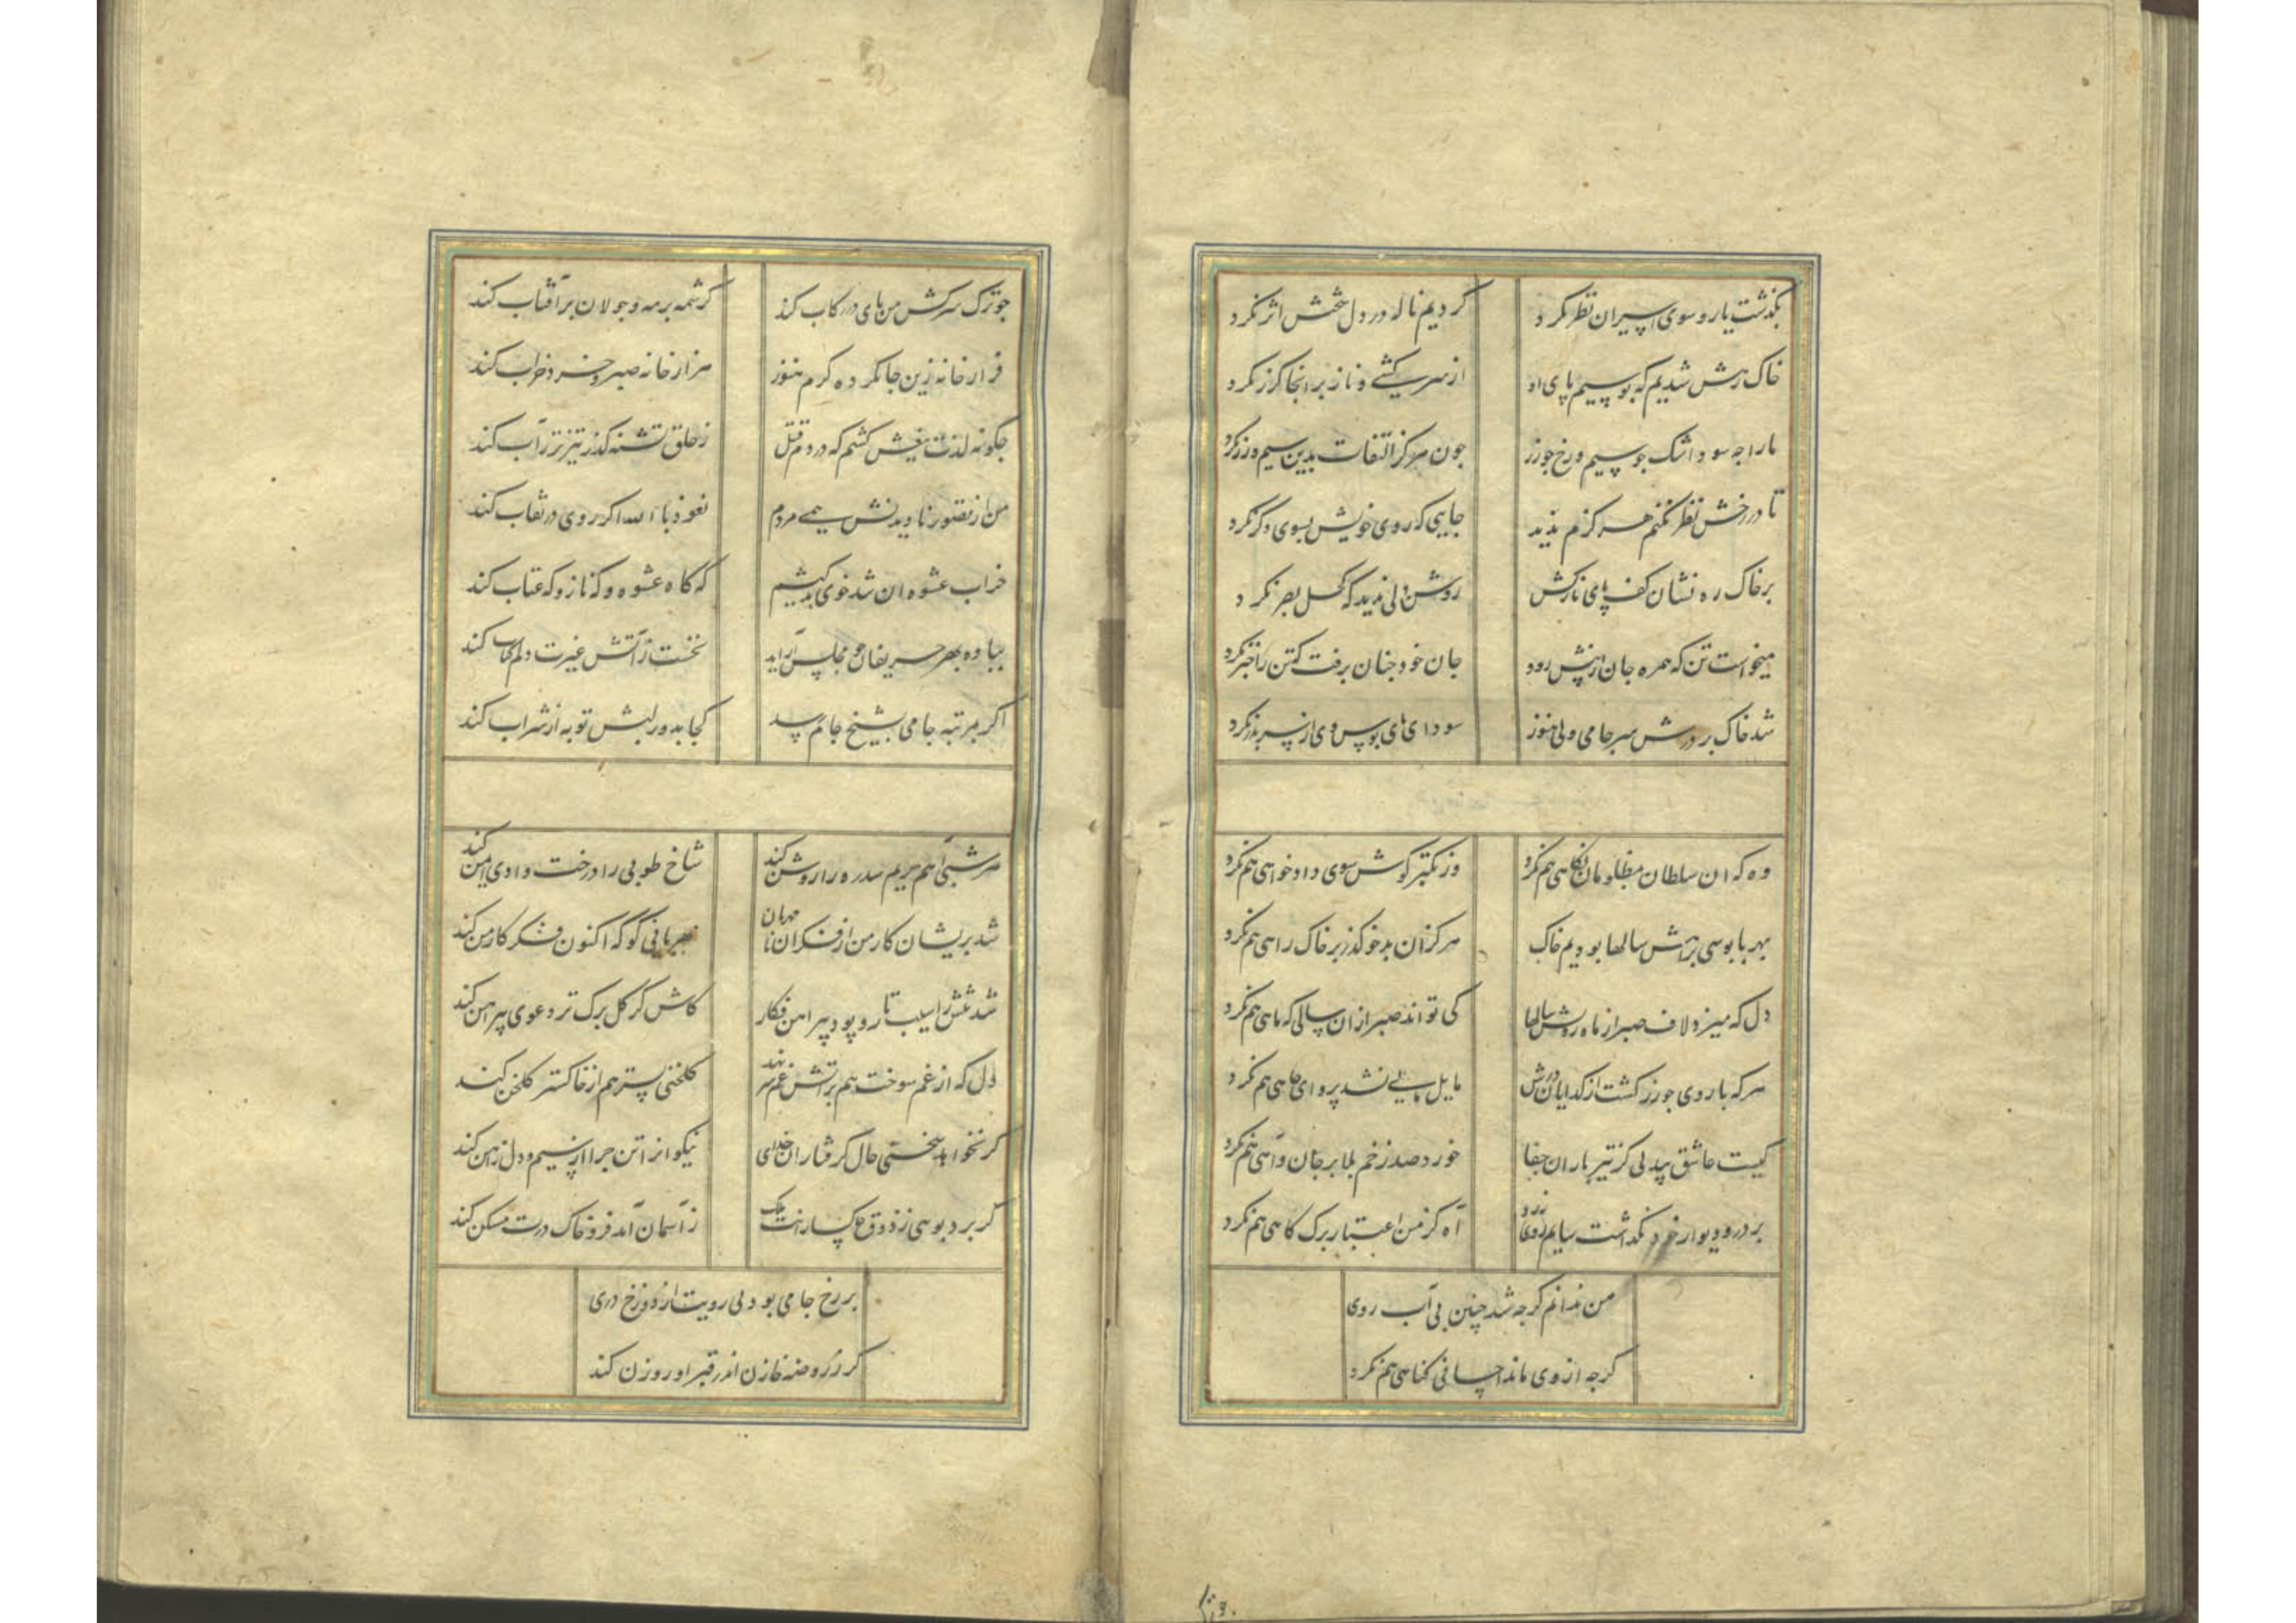 بگذشت یار و سوی اسیران نظر نکرد
کردیم ناله در دل سختش اثر نکرد
خاک رهش شدیم که بوسیم پای او
از سرکشی و ناز بر انجا گذر نکرد
ما را چه سود اشک چو سیم و رخ چو زر
چون هرگز التفات بدین سیم و زر نکرد
تا در رخش نظر نکنم هرگزم ندید
جایی که روی خویش بسوی دگر نکرد
بر خاک ره نشان کف پای نازکش
روشن دلی ندید که کحل بصر نکرد
میخواست تن که همره جان از پیش رود
جان خود چنان برفت که تن را خبر نکرد
شد خاک بر درش سر جامی ولی هنوز
سودای پای بوس وی از سر بدر نکرد
وه که ان سلطان مظلومان نگاهی هم نکرد
وز تکبر گوش سوی دادخواهی هم نکرد
بهر پابوسی براهش سالها بودیم خاک
هرگز آن بدخو گذر بر خاک راهی هم نکرد
دل که میزد لاف صبر از ماه رویش سالها
کی تواند صبر ازان سالی که ماهی هم نکرد
هر که با روی چو زر گشت از گدایان درش
مایل مالی نشد پروای جاهی هم نکرد
کیست عاشق بیدلی کز تیر باران جفا
خورد صد زخم بلا بر جان و آهی هم نکرد
بر در و دیوار خود نگذاشت سایم روی زرد
آه کز من اعتبار برگ کاهی هم نکرد
من ندانم کز چه شد چنین بی آب روی
گرچه از وی ماند احسانی گناهی هم نکرد
چو ترک سرکش من پای در رکاب کند
کرشمه بر مه و جولان بر آفتاب کند
قرار خانه زین جا نکرده گرم هنوز
هزار خانه صبر و خرد خراب کند
چگونه لذت تیغش کشم که در دم قتل
ز حلق تشنه گذر تیزتر ز آب کند
من از تصور نادیدنش همی مردم
نعوذ بالله اگر روی در نقاب کند
خراب عشوه ان شوخ بدخوی کشیم
که گاه عشوه و که ناز و که عتاب کند
بباده بهر حریفان چو مجلس آراید
نخست ز آتش غیرت دلم کباب کند
اگر بمرتبه جامی بشیخ جام رسد
کجا بدور لبش توبه از شراب کند
هر شبی آهم حریم سدره را روشن کند
شاخ طوبی را درخت وادی ایمن کند
شد پریشان کار من از فکر ان نامهربان
مهربانی گو که اکنون فکر کار من کند
شد تنش را سیب تار و پود پیراهن فکار
کاش گر گل برگ تر دعوی پیراهن کند
دل که از غم سوخت هم بر آتش غم سر نهد
گلخنی بستر هم از خاکستر گلخن کند
گر نخواهد سختی حال گرفتاران خدای
نیکوانرا تن چرا از سیم و دل ز آهن کند
گر برد بوسی ز ذوق خاکسارانت ملک
ز آسمان آید فرو خاک درت مسکن کند
بر رخ جامی بود بی رویت از دوزخ دری
گر ز روضه خازن اندر قبر او روزن کند